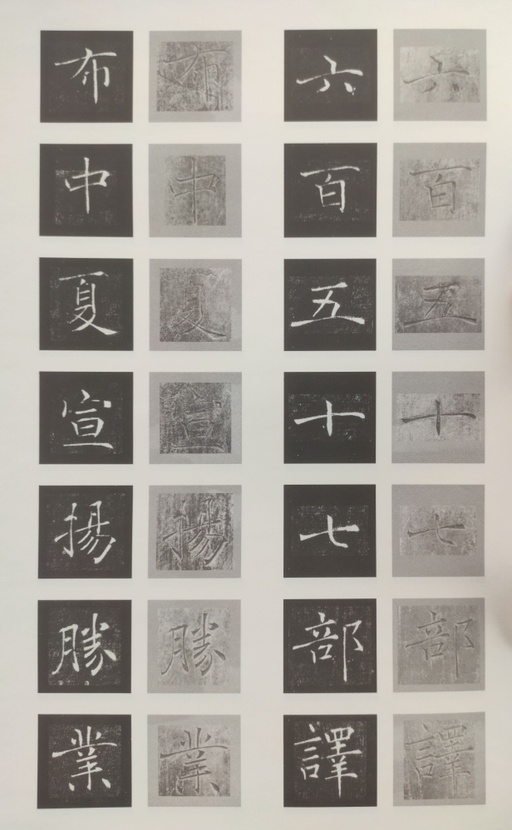 六百五十七部譯
六百五十七部譯
布中夏宣揚勝業
布中夏宣揚勝業